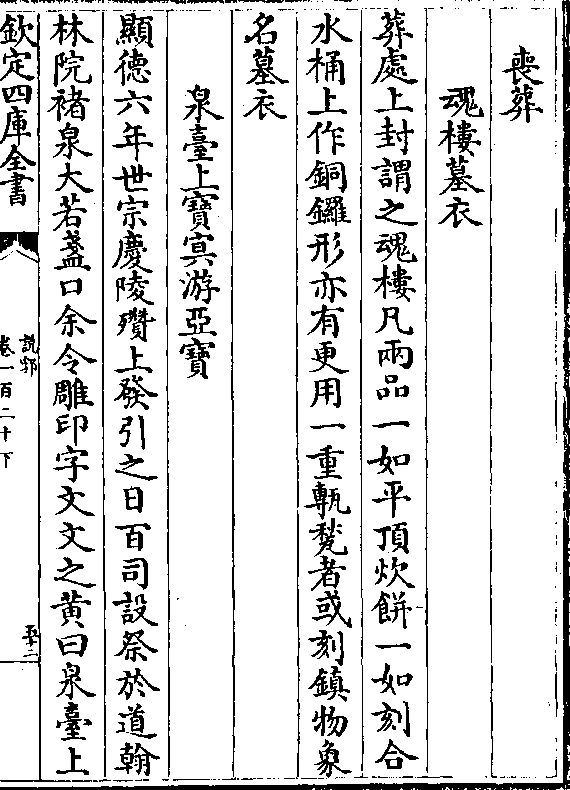 喪葬
魂樓墓衣
葬處上封謂之魂樓凡兩品一如平頂炊餅一如刻合
水桶上作銅鑼形亦有更用一重甎甃者或刻鎮物象
名墓衣
泉臺上寶㝠游亞寶
顯德六年世宗慶陵殯土發引之日百司設祭於道翰
林院褚泉大若盞口余令雕印字文文之黄曰泉臺上
欽定四庫全書
說郛
卷一百二十下